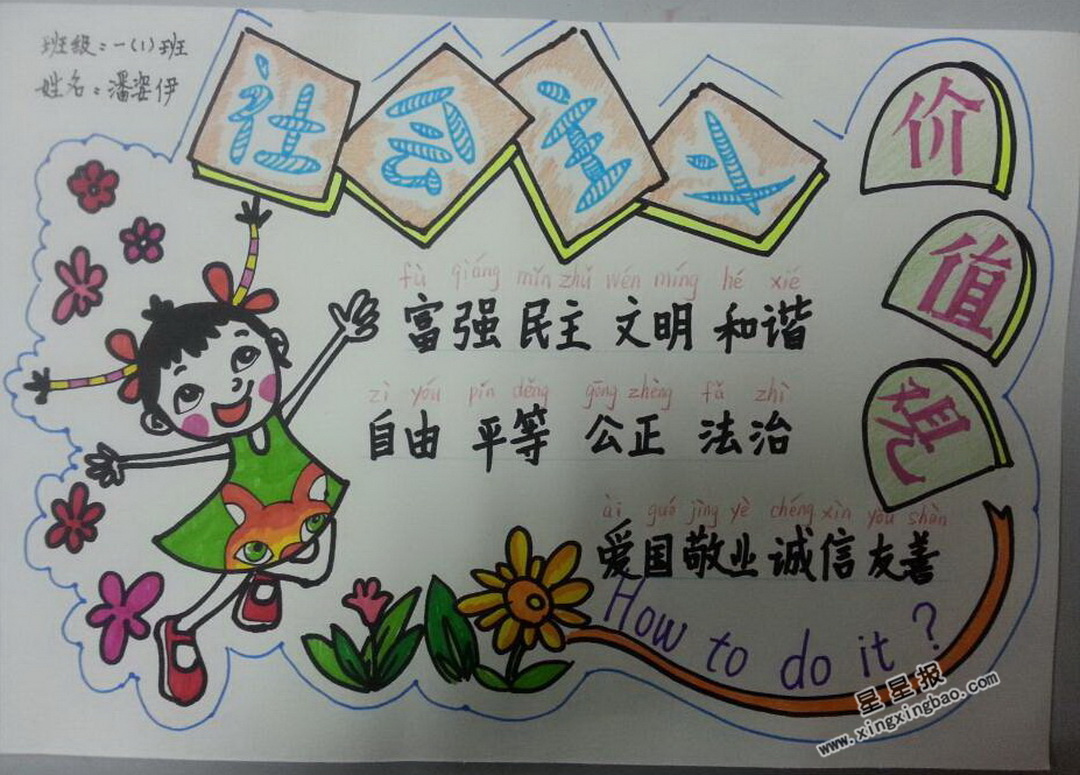 班级：一(1)班
姓名：潘姿伊
社会主义
价值观
fù qiáng mín zhǔ wén míng hé xié
富强 民主 文明 和谐
zì yóu pín děng gōng zhèng fǎ zhì
自由 平等 公正 法治
ài guó jìng yè chéng xìn yǒu shàn
爱国敬业诚信友善
How to do it?
星星报
www.xingxingbao.com